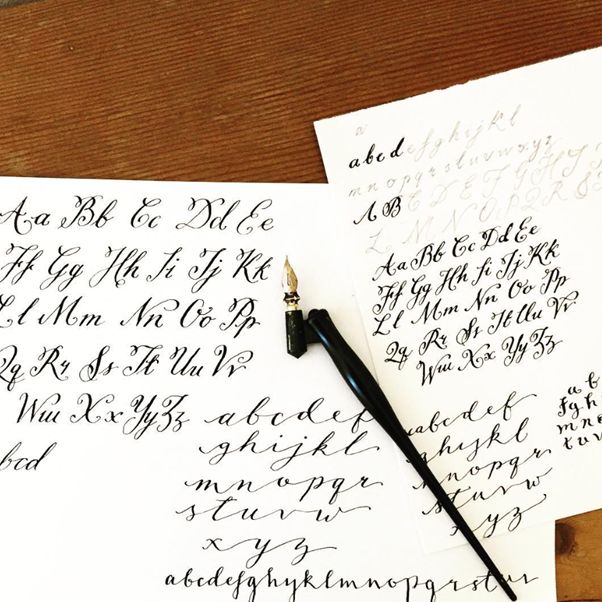 Aa Bb Cc Dd Ee
Ff Gg Hh Ii Jj Kk
Ll Mm Nn Oo Pp
Qq Rr Ss Tt Uu Vv
Ww Xx Yy Zz
abcdef
ghijkl
mnopqr
stuvw
xyz
bcd
abcdefghyklmnopqrstuv
a
abcdefghijkl
mnopqrstuvwxyz
ABCDEFGHIJ
LMNOPQRS
Aa Bb Cc Dd Ee
Ff Gg Hh Ii Jj Kk
Ll Mm Nn Oo Pp
Qq Rr Ss Tt Uu Vv
Ww Xx Yy Zz
abcdef
ghijkl
mnopqr
stuvw
xyz
a b
fgh
mn
tuv